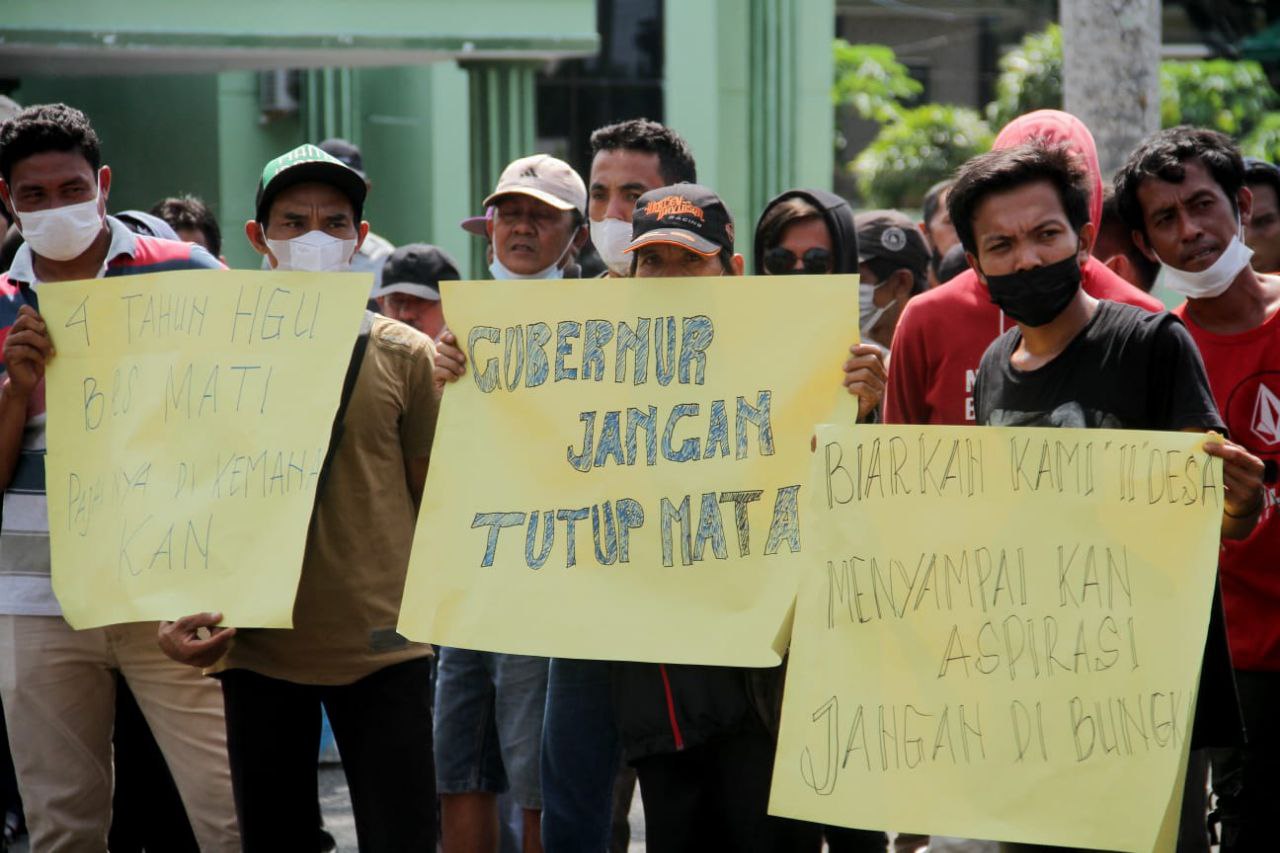 4 TAHUN HGU
BPS MATI
PAJAKNYA DI KEMANA
KAN
GUBERNUR
JANGAN
TUTUP MATA
BIARKAN KAMI "11" DESA
MENYAMPAI KAN
ASPIRASI
JANGAN DI BUNGK